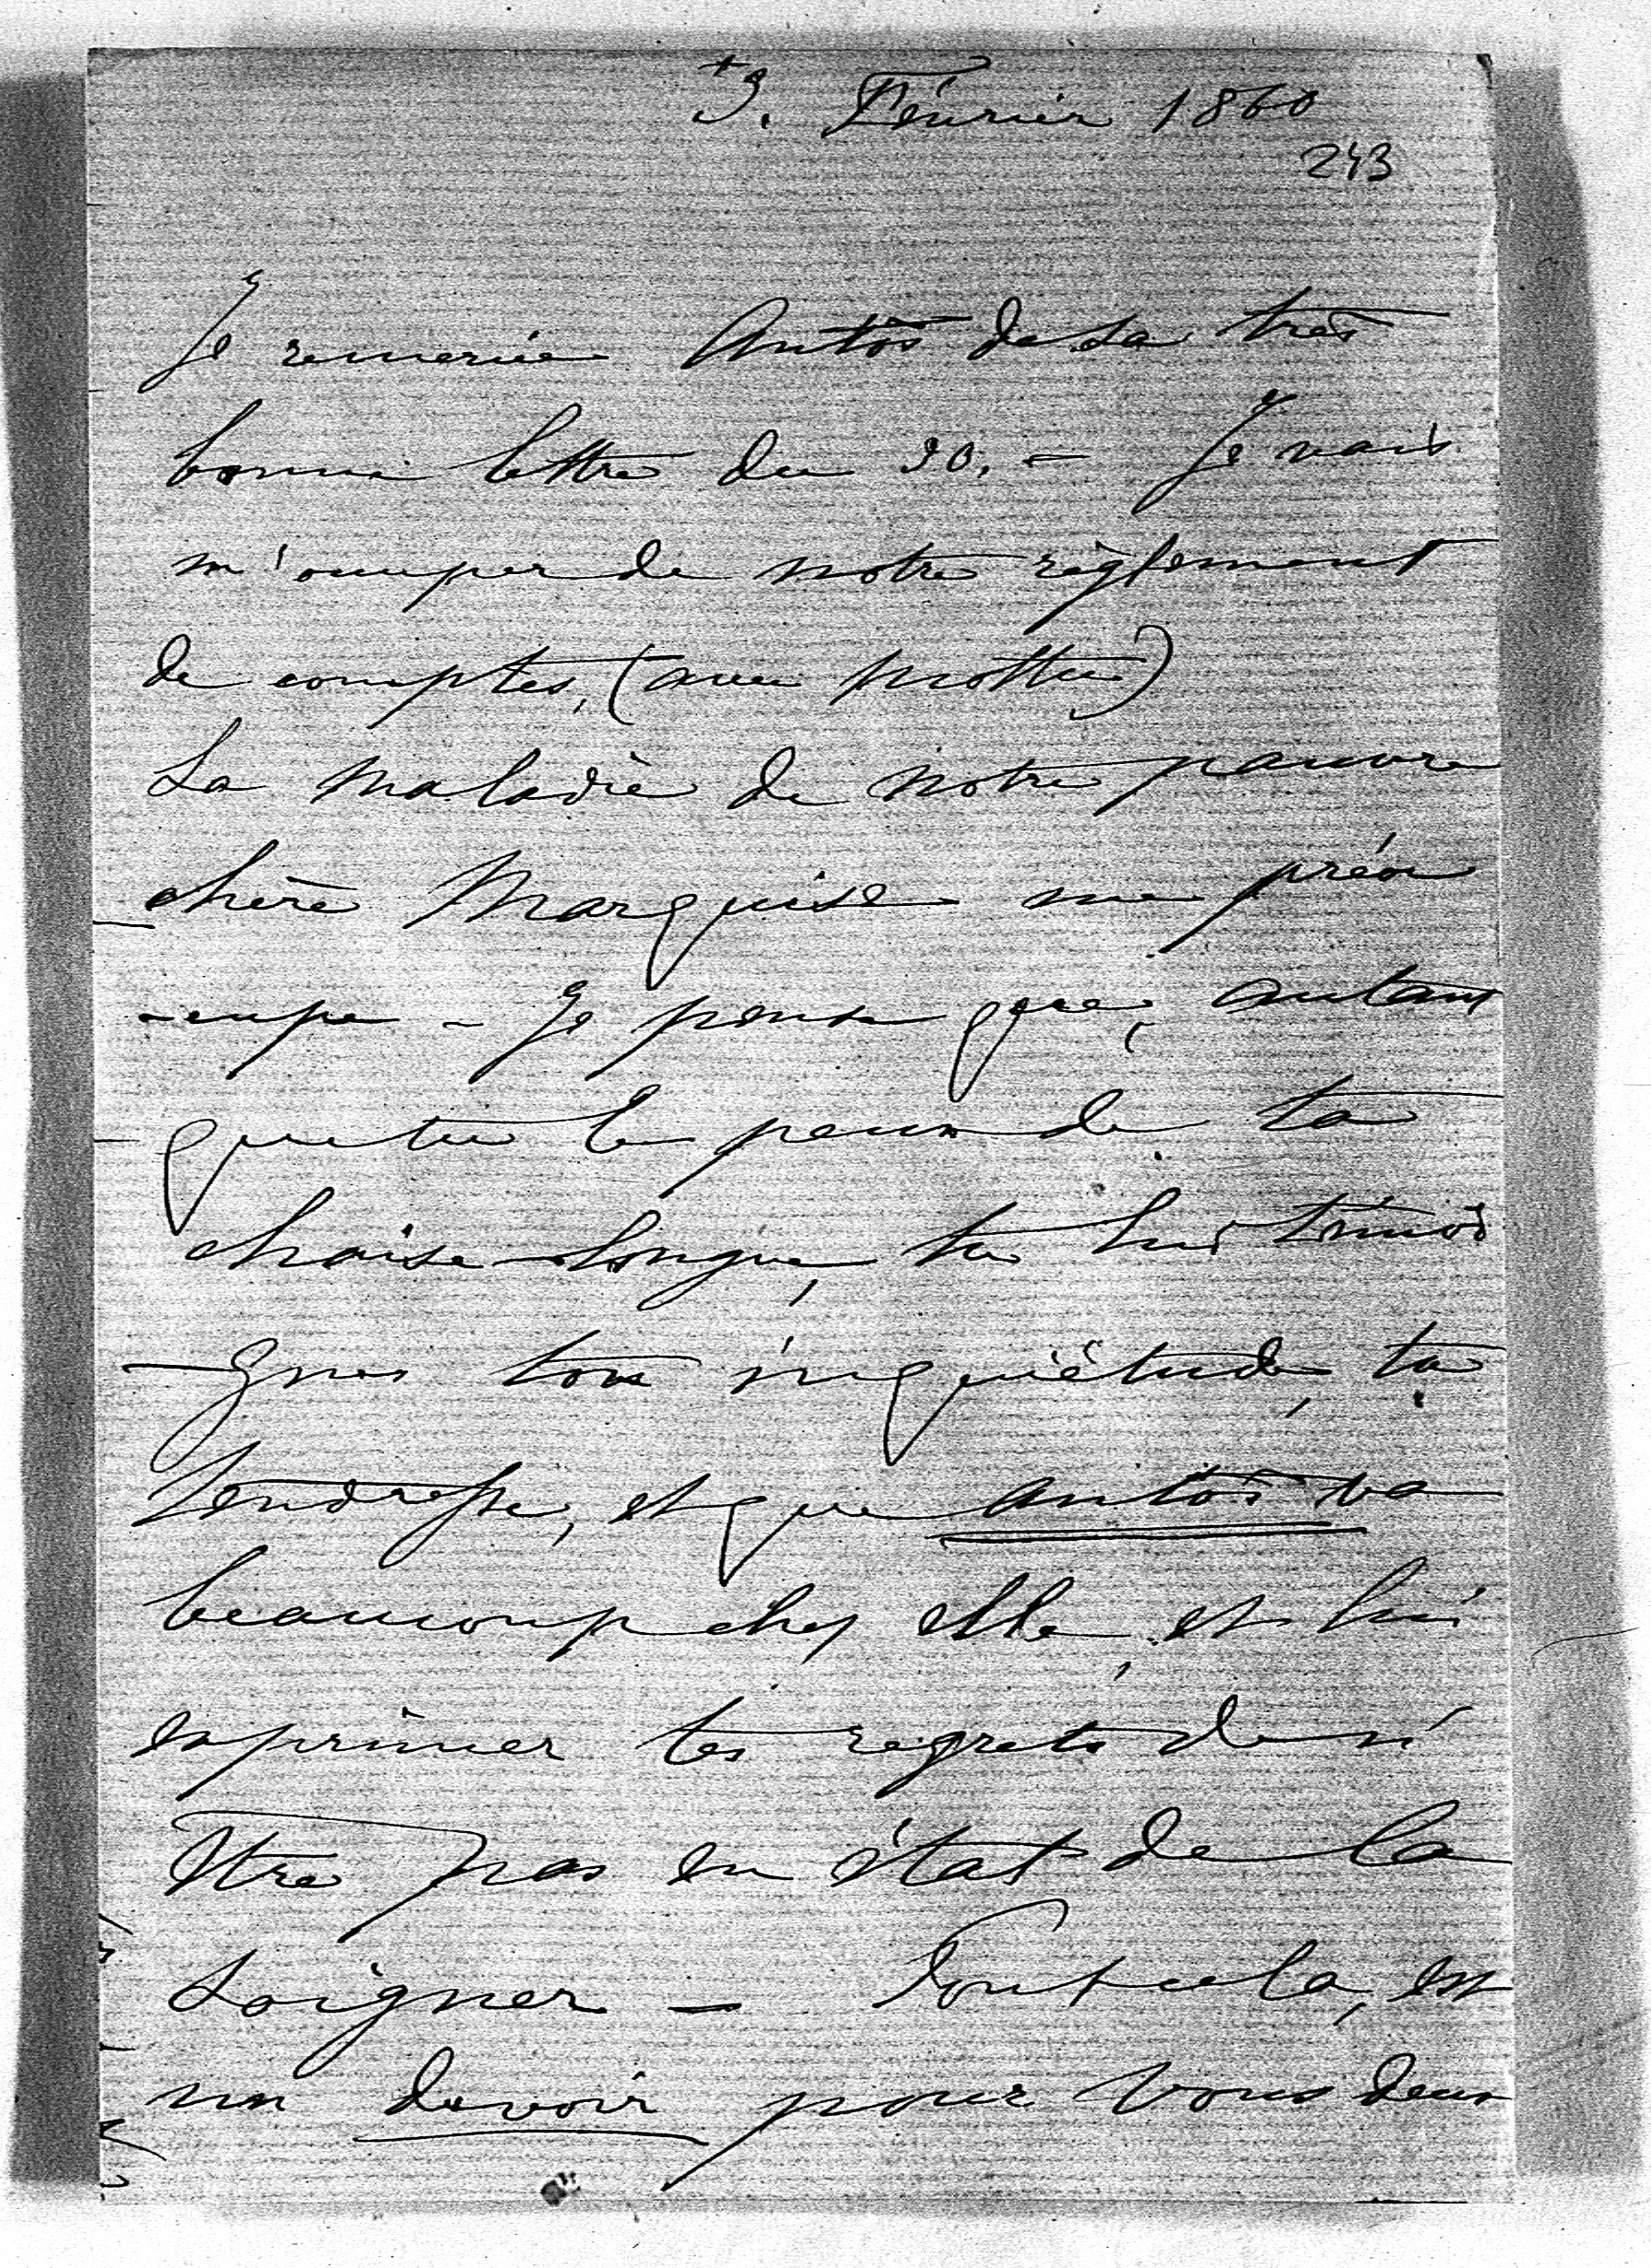 +
3. Février 1860
243
Je remercie Antos de sa très
bonne lettre du 30. – Je vais
m'occuper de notre règlement
de comptes, (avec Mottu)
La maladie de notre pauvre
chère Marquise me préoc
-cupe – Je pense que, autant
que tu le peux de ta
chaise-longue, tu lui témoi
-gnes ton inquiétude, ta
tendresse, et que Antos va
beaucoup chez elle, et lui
exprimer tes regrets de n'
être pas en état de la
soigner – Tout cela, est
un devoir pour vous deux